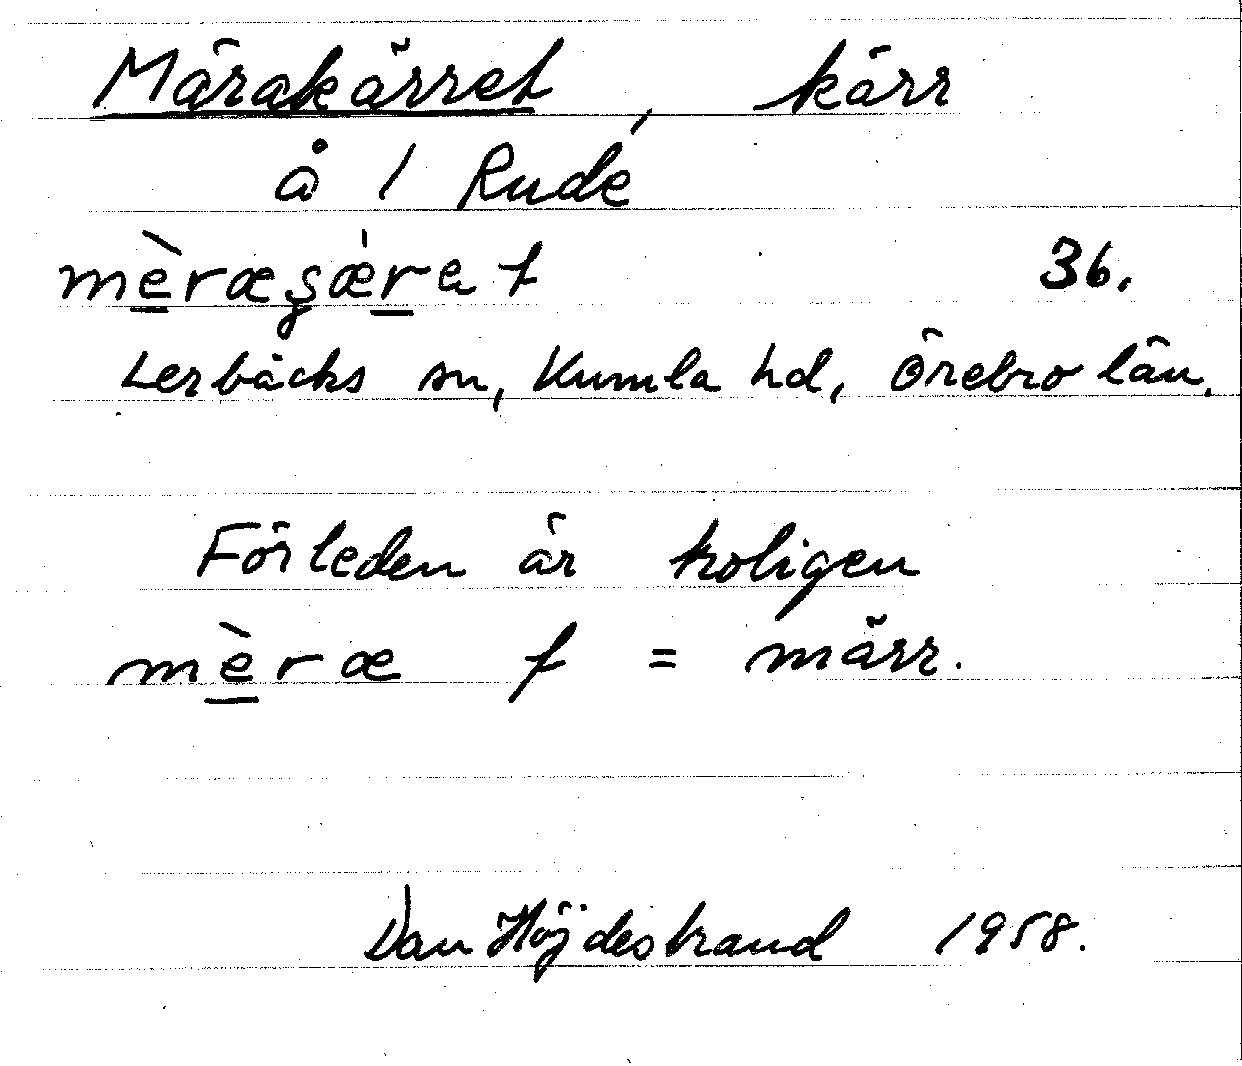 Märakärret, kärr
å 1 Rude
mèræȿæ̀ret 36.
Lerbäcks sn, Kumla hd, Örebro län.
Förleden är troligen
mèræ f = märr.
Dan Höjdestrand 1958.